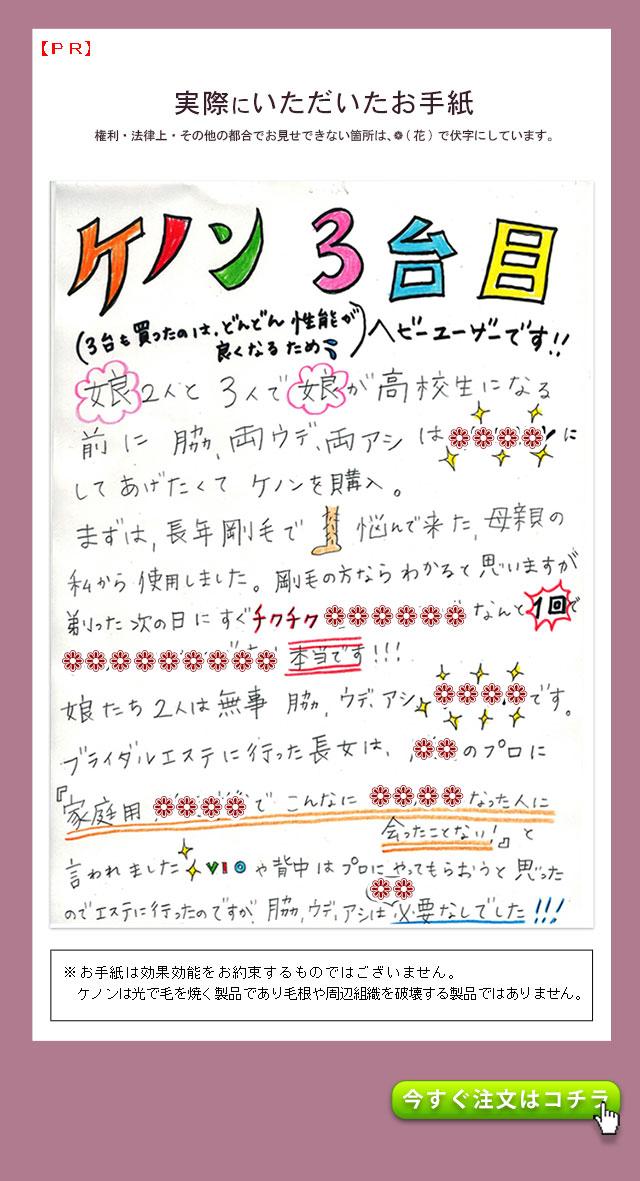 【ＰＲ】
実際にいただいたお手紙
権利・法律上・その他の都合でお見せできない箇所は、❁(花)で伏字にしています。
ケノン 3台目
(3台も買ったのは、どんどん 性能が
良くなるため)
ヘビーユーザーです!!
娘2人と 3人で 娘が高校生になる
前に 脇、両ウデ、両アシ は❁❁❁❁に
してあげたくて ケノンを購入。
まずは、長年剛毛で 悩んで来た、母親の
私から使用しました。剛毛の方なら わかると思いますが
剃った次の日に すぐチクチク❁❁❁❁❁❁ なんと1回で
❁❁,❁❁❁❁❁❁❁ 本当です!!!
娘たち2人は無事 脇、ウデ、アシ、❁❁❁❁です。
ブライダルエステに行った長女は、❁❁のプロに
『家庭用 ❁❁❁❁で こんなに ❁❁❁❁なった人に
会ったことない!』と
言われました VIOや背中はプロに やってもらおうと思った
❁❁
のでエステに行ったのですが 脇、ウデ、アシは必要なしでした!!!
※お手紙は効果効能をお約束するものではございません。
ケノンは光で毛を焼く製品であり毛根や周辺組織を破壊する製品ではありません。
今すぐ注文はコチラ